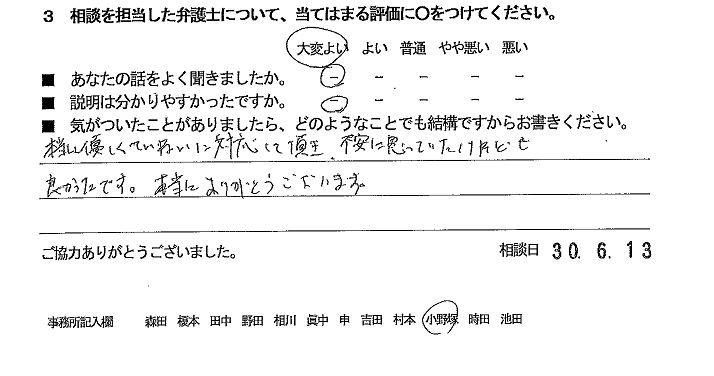 3 相談を担当した弁護士について、当てはまる評価に〇をつけてください。
大変よい よい 普通 やや悪い 悪い
■ あなたの話をよく聞きましたか。 − − − − −
■ 説明は分かりやすかったですか。 − − − − −
■ 気がついたことがありましたら、どのようなことでも結構ですからお書きください。
本当に優しくていねいに対応して頂き、不安に思っていたけれども
良かったです。本当にありがとうございます。
ご協力ありがとうございました。 相談日 30. 6. 13
事務所記入欄 森田 榎本 田中 野田 相川 眞中 申 吉田 村本 小野塚 時田 池田